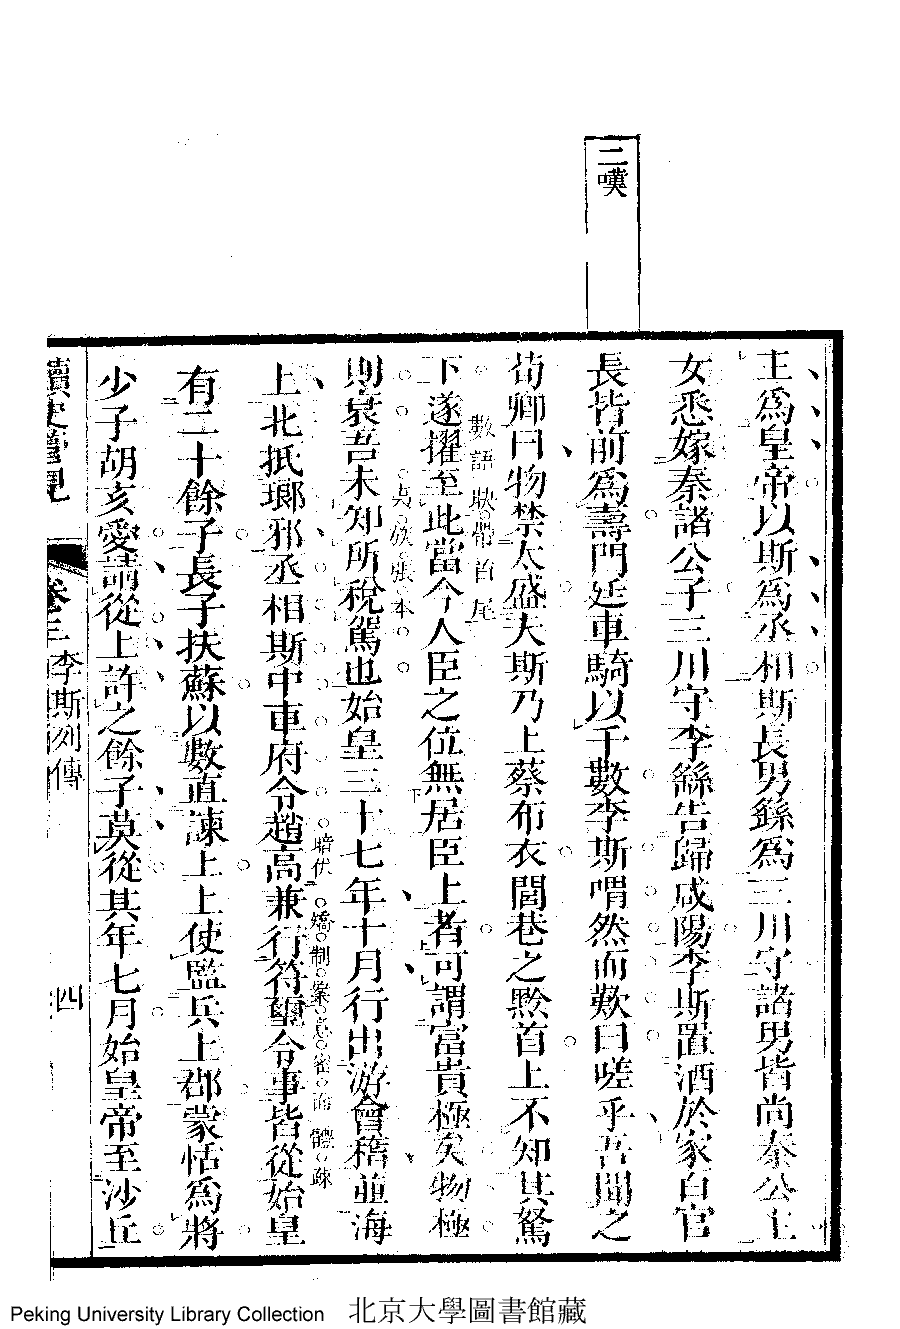 二嘆
王為皇帝以斯為丞相斯長男繇為三川守諸男皆尚秦公主
女悉嫁秦諸公子三川守李繇告歸咸陽李斯置酒於家百官
長皆前為壽門廷車騎以千數李斯喟然而歎曰嗟乎吾聞之
荀卿曰物禁太盛夫斯乃上蔡布衣閭巷之黔首上不知其駑
數語 帶首尾
下遂擢至此當今人臣之位無居臣上者可謂富貴極矣物極
張本
則衰吾未知所稅駕也始皇三十七年十月行出游會稽並海
上北抵瑯邪丞相斯中車府令趙高兼行符璽令事皆從始皇
有二十餘子長子扶蘇以數直諫上上使監兵上郡蒙恬為將
少子胡亥愛請從上許之餘子莫從其年七月始皇帝至沙丘
讀史管見 卷三 李斯列傳 四
Peking University Library Collection 北京大學圖書館藏